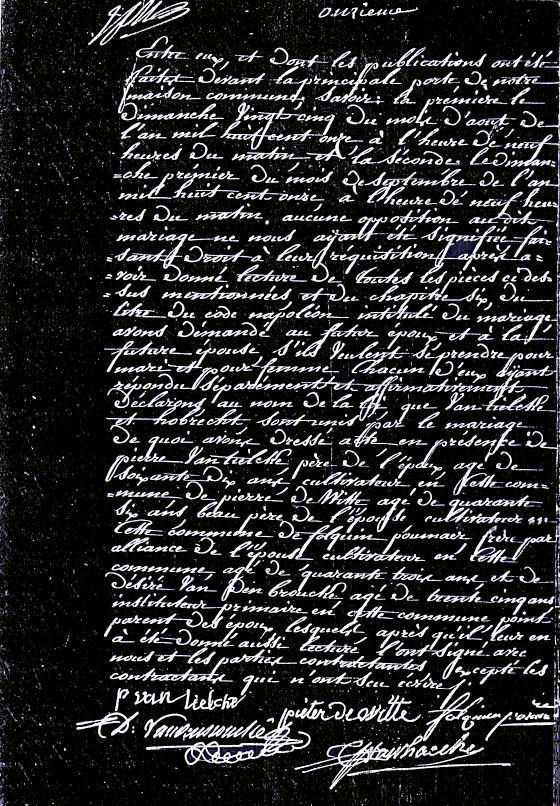 onzieme
Entre eux, et dont les publications ont été
faites devant la principale porte de notre
maison commune, savoir: la première le
dimanche Vingt cinq du mois d'aout de
l'an mil huit cent onze à l'heure de neuf
heures du matin et la séconde le diman
=che prémier du mois de septembre de l'an
mil huit cent onze, a l'heure de neuf heu
=res du matin. aucune opposition au dit
mariage ne nous ayant été signifiée fai
=sant droit à leur réquisition, après a=
=voir donné lecture de toutes les pièces ci des
=sus mentionnées, et du chapitre six, du
titre du code napoléon intitulé du mariage
avons démandé au futur époux et à la
future épouse, s'ils Veulent se prendre pour
mari et pour femme chacun d'eux ayant
répondu séparement et affirmativement
Déclarons au nom de la loi que Van tielcke
et hobrecht sont unis par le mariage
de quoi avons dressé acte en présence de
pierre Van tielcke père de l'époux agé de
soixante dix ans, cultivateur en cette com=
=mune de pierre de Witte agé de quarante
six ans beau père de l'épouse cultivateur
cette commune de folquin poumaer frère par
alliance de l'épouse cultivateur en cette
commune agé de quarante trois ans et de
désiré Van den brouche agé de trente cinq ans
instituteur primaire en cette commune point
parent des époux lesquels, après qu'il leur en
à été donné aussi lecture l'ont signé avec
nous et les parties contractantes excepté les
contractans qui n'ont scu écrire
p van tielcke
pieter de witte